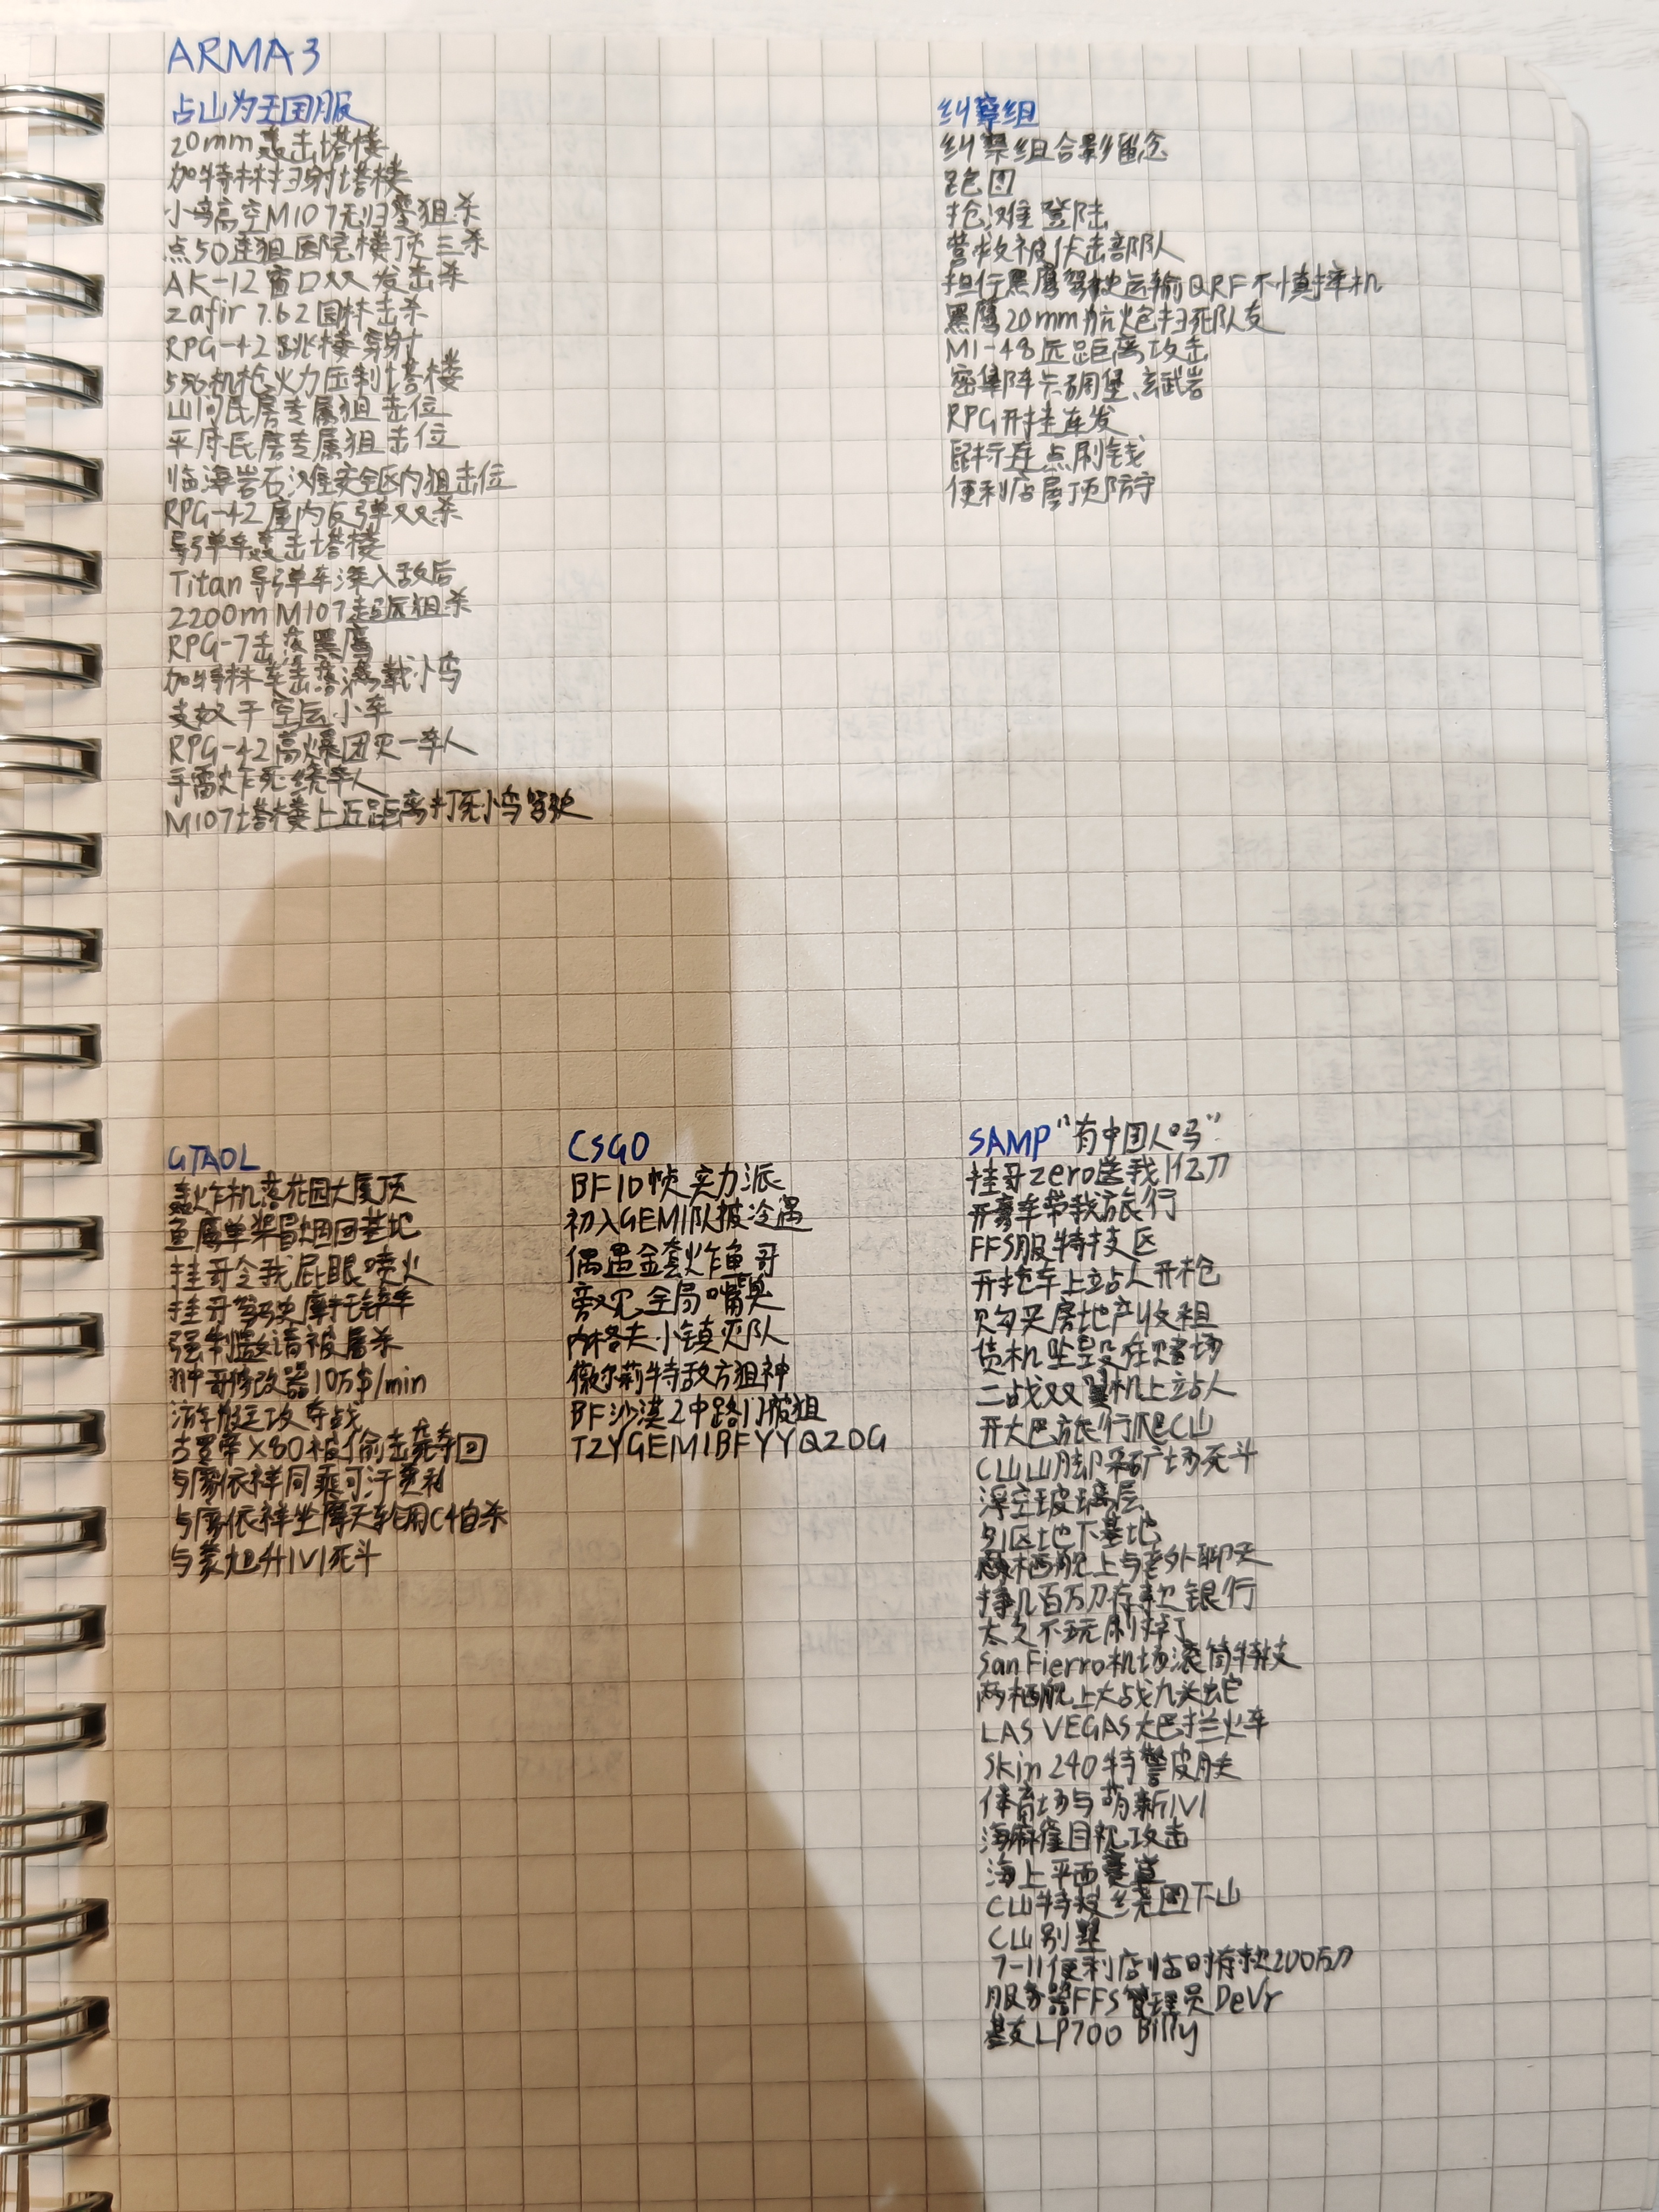 ARMA3
占山为王国服
20mm轰击塔楼
加特林扫射塔楼
小鸟高空M107无归零狙杀
点50连狙医院楼顶三杀
AK-12窗口双发击杀
zafir 7.62园林击杀
RPG-42跳楼穷射
556机枪火力压制塔楼
山间民房专属狙击位
平房民房专属狙击位
临海岩石滩安全区内狙击位
RPG-42屋内反弹双杀
导弹车轰击塔楼
Titan导弹车深入敌后
2200m M107超远狙杀
RPG-7击落黑鹰
加特林车击落满载小鸟
支奴干空运小车
RPG-42高爆团灭一车人
手雷炸死绕车人
M107塔楼上近距离打死小鸟驾驶
纠察组
纠察组合影留念
跑图
抢滩登陆
营救被伏击部队
担任黑鹰驾驶运输QRF不慎摔机
黑鹰20mm航炮扫死队友
MI-48远距离攻击
密集阵六碉堡、玄武岩
RPG开挂连发
鼠标连点刷钱
便利店屋顶防守
GTAOL
轰炸机落花园大厦顶
鱼鹰单桨冒烟回基地
挂哥令我屁眼喷火
挂哥驾驶摩托铲车
强制邀请被屠杀
翀哥修改器10万$/min
游艇攻夺战
古罗帝X80被偷击杀夺回
与廖依祥同乘可汗贾利
与廖依祥坐摩天轮用C4自杀
与蒙旭升1V1死斗
CSGO
BF10帧实力派
初入GEMI队被冷遇
偶遇金套炸鱼哥
旁观全局嘴臭
内格夫小镇灭队
薇尔莉特敌方狙神
BF沙漠2中路门被狙
TZYGEMIBFYYQZDG
SAMP "有中国人吗"
挂哥zero送我1亿刀
开豪车带我旅行
FFS服特技区
开抢车上站人开枪
购买房地产收租
货机坠毁在赌场
二战双翼机上站人
开大巴旅行爬C山
C山山脚采矿场死斗
浮空玻璃层
51区地下基地
两栖舰上与老外聊天
挣几百万刀存款银行
太久不玩刷掉
San Fierro机场滚筒特技
两栖舰上大战九头蛇
LAS VEGAS大巴拦火车
Skin 240特警皮肤
体育场与萌新1V1
海麻雀目视攻击
海上平面赛道
C山特技绕圈下山
C山别墅
7-11便利店临时存款200万刀
服务器FFS管理员DeVr
基友LP700 Billy